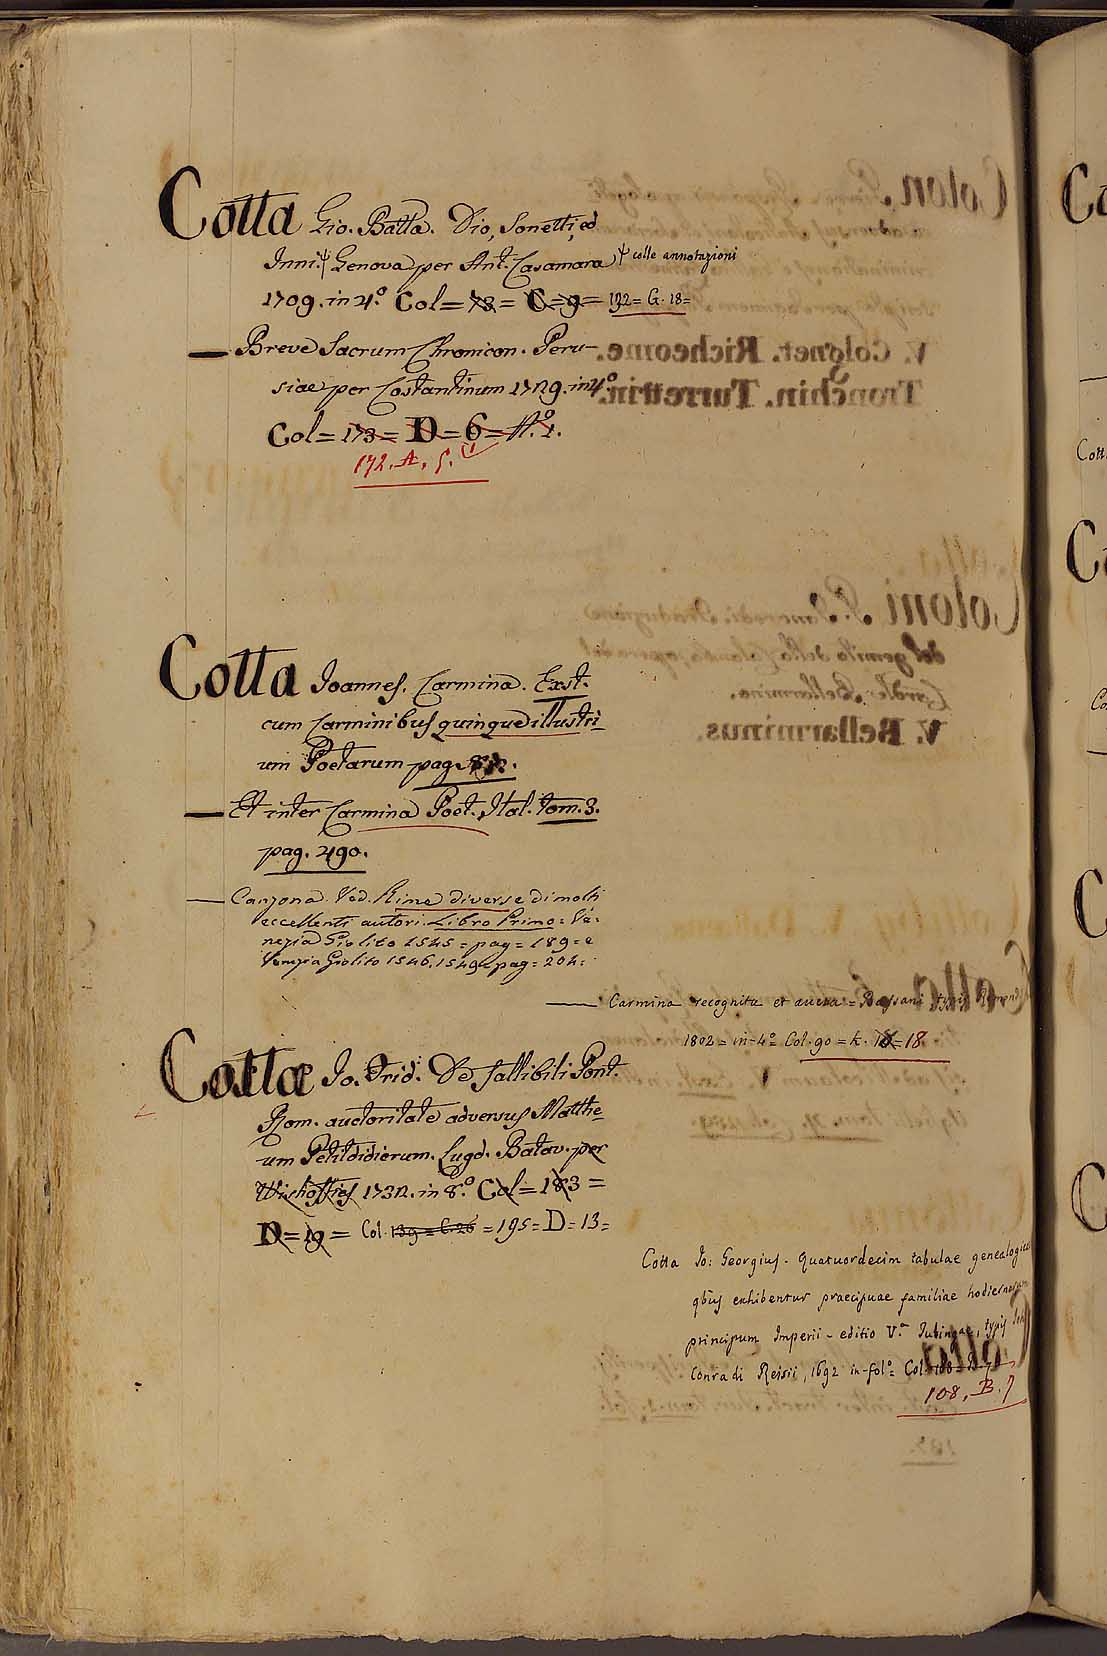 Cotta Gio. Batta. Dio, Sonetti, ed
Inni. Ψ Genova per Ant. Casamara Ψ colle annotazioni
1709. in 4.º Col = 73 = C = 9 = 132 = G. 18 =
— Breve Sacrum Chronicon. Peru-
siae per Costantinum 1729. in 4º
Col = 173 = D = 6 = A.º 1.
172. A. 5.
Cotta Joannes. Carmina. Exst.
cum Carminibus quinque illustri-
um Poetarum pag.
— Et inter Carmina Poet. Ital. tom. 3.
pag. 490.
— Canzona. Ved. Rime diverse di molti
eccellenti autori. Libro Primo = Ve-
nezia Giolito 1545 = pag = 189 = e
Venezia Giolito 1546. 1549 = pag = 204 =
— Carmina recognita et aucta = Bassani typis
1802 = in-4º Col. 90 = k. 18 = 18.
Cottæ Jo. Frid. De fallibili Pont.
Rom. auctoritate adversus Matthe-
um Petitdidierum. Lugd. Batav. per
Wishoffios 1732. in 8.º Col = 183 =
D = 19 = Col. 139 = C. 26 = 195 = D = 13 =
Cotta Jo: Georgius. Quatuordecim tabulae genealogicae
qbus exhibentur praecipuae familiae hodiernorum
principum Imperii - editio V.ª Tubingae, typis
Conradi Reisii, 1692 in-folº = Col. 108 = B.
108, B. 7